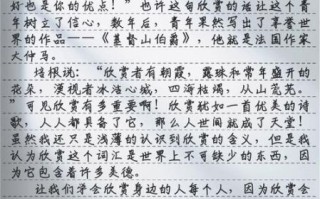 好也是你的优点！”也许这句欣赏的话让这个青
年树立了信心，数年后，青年果然写出了享誉世
界的作品——《基督山伯爵》，他就是法国作家
大仲马。
培根说：“欣赏者有朝霞，露珠和常年盛开的
花朵，漠视者冰洁心城，四海枯竭，丛山荒芜。
”可见欣赏有多重要啊！欣赏犹如一首优美的诗
歌，人人都具备了它，那么人世间就成了天堂！
虽然我还只是浅薄的认识到欣赏的含义，但是我
认为欣赏这个词汇是世界上不可缺少的东西，因
为它包含着许多美德。
让我们学会欣赏身边的人每个人，因为欣赏会